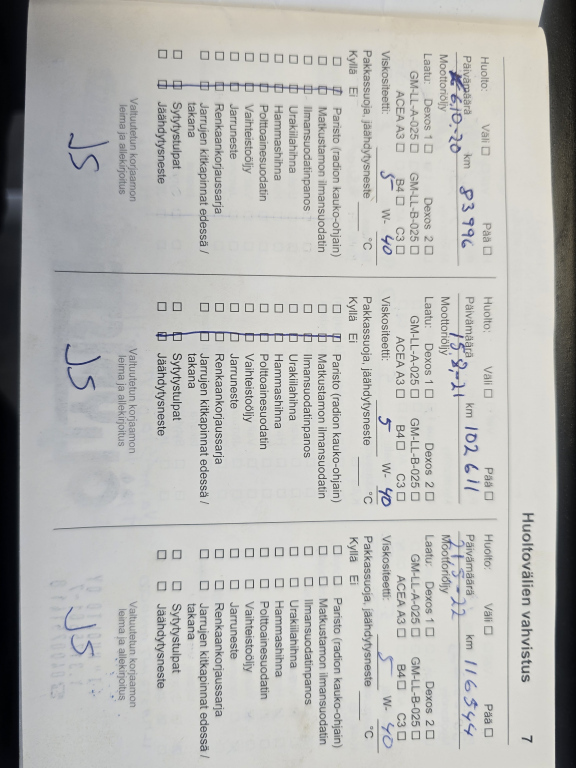 Huoltovälien vahvistus 7
Huolto: Väli ☐ Pää ☐
Päivämäärä 6.10.-20 km 83996
Moottoriöljy
Laatu: Dexos 1 ☐ Dexos 2 ☐
GM-LL-A-025 ☐ GM-LL-B-025 ☐
ACEA A3 ☐ B4 ☐ C3 ☐
Viskositeetti: 5 W- 40
Pakkassuoja, jäähdytysneste °C
Kyllä Ei
☐ ☐ Paristo (radion kauko-ohjain)
☐ ☐ Matkustamon ilmansuodatin
☐ ☐ Ilmansuodatinpanos
☐ ☐ Urakiilahihna
☐ ☐ Hammashihna
☐ ☐ Polttoainesuodatin
☐ ☐ Vaihteistoöljy
☐ ☐ Jarruneste
☐ ☐ Renkaankorjaussarja
☐ ☐ Jarrujen kitkapinnat edessä /
takana
☐ ☐ Sytytystulpat
☐ ☐ Jäähdytysneste
Valtuutetun korjaamon
leima ja allekirjoitus
JS
Huolto: Väli ☐ Pää ☐
Päivämäärä 15.8.-21 km 102611
Moottoriöljy
Laatu: Dexos 1 ☐ Dexos 2 ☐
GM-LL-A-025 ☐ GM-LL-B-025 ☐
ACEA A3 ☐ B4 ☐ C3 ☐
Viskositeetti: 5 W- 40
Pakkassuoja, jäähdytysneste °C
Kyllä Ei
☐ ☐ Paristo (radion kauko-ohjain)
☐ ☐ Matkustamon ilmansuodatin
☐ ☐ Ilmansuodatinpanos
☐ ☐ Urakiilahihna
☐ ☐ Hammashihna
☐ ☐ Polttoainesuodatin
☐ ☐ Vaihteistoöljy
☐ ☐ Jarruneste
☐ ☐ Renkaankorjaussarja
☐ ☐ Jarrujen kitkapinnat edessä /
takana
☐ ☐ Sytytystulpat
☐ ☐ Jäähdytysneste
Valtuutetun korjaamon
leima ja allekirjoitus
JS
Huolto: Väli ☐ Pää ☐
Päivämäärä 21.5-22 km 116544
Moottoriöljy
Laatu: Dexos 1 ☐ Dexos 2 ☐
GM-LL-A-025 ☐ GM-LL-B-025 ☐
ACEA A3 ☐ B4 ☐ C3 ☐
Viskositeetti: 5 W- 40
Pakkassuoja, jäähdytysneste °C
Kyllä Ei
☐ ☐ Paristo (radion kauko-ohjain)
☐ ☐ Matkustamon ilmansuodatin
☐ ☐ Ilmansuodatinpanos
☐ ☐ Urakiilahihna
☐ ☐ Hammashihna
☐ ☐ Polttoainesuodatin
☐ ☐ Vaihteistoöljy
☐ ☐ Jarruneste
☐ ☐ Renkaankorjaussarja
☐ ☐ Jarrujen kitkapinnat edessä /
takana
☐ ☐ Sytytystulpat
☐ ☐ Jäähdytysneste
Valtuutetun korjaamon
leima ja allekirjoitus
JS